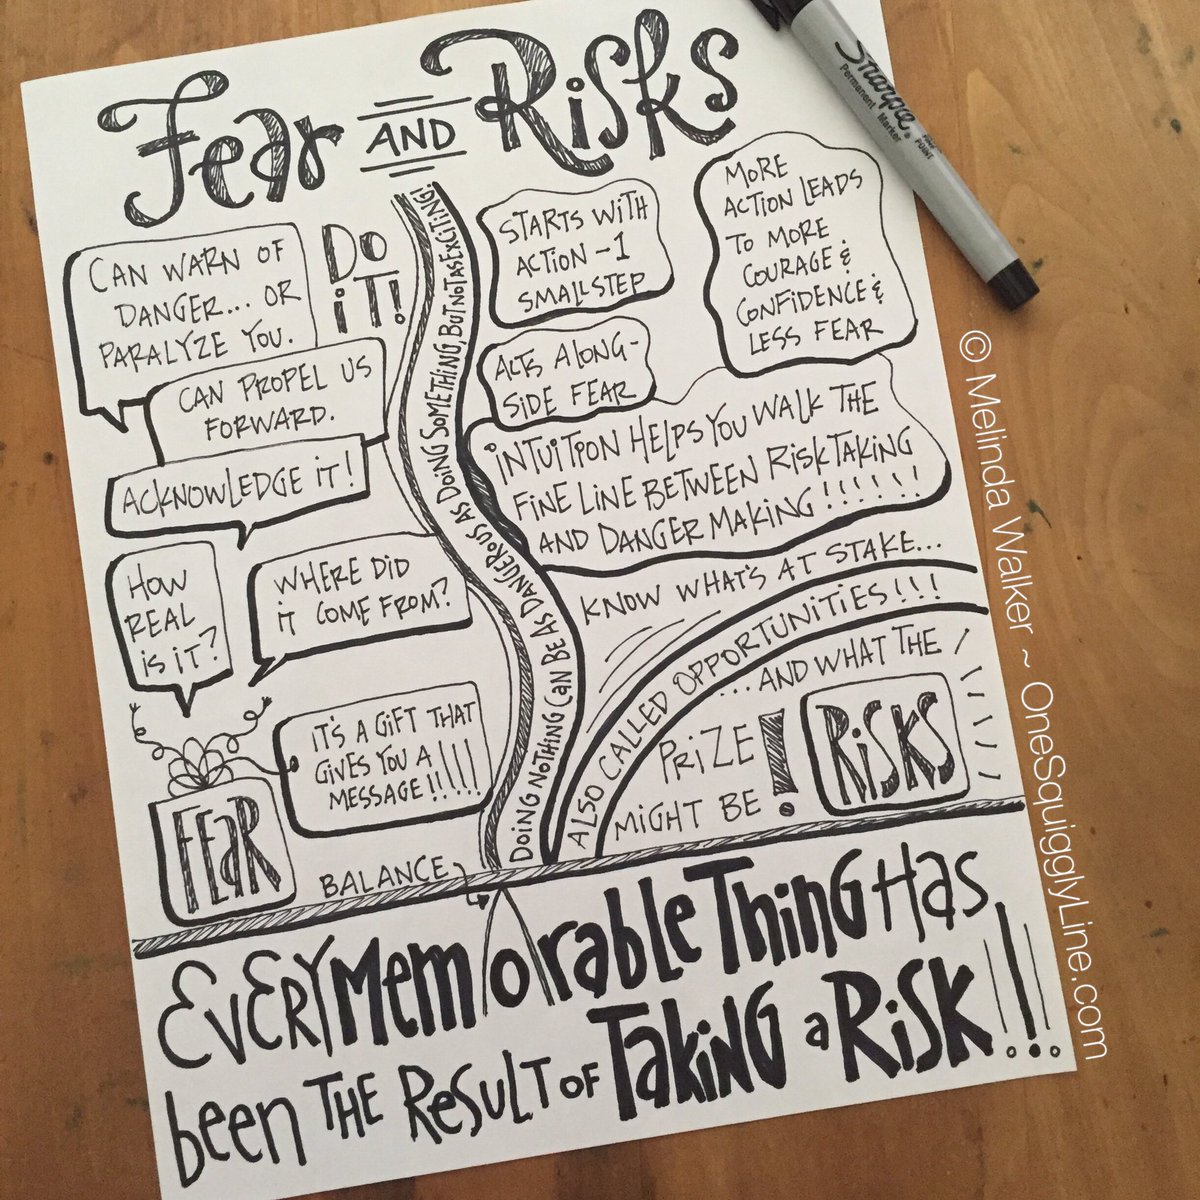 Fear AND Risks
CAN WARN OF
DANGER... OR
PARALYZE YOU.
DO
iT!
CAN PROPEL US
FORWARD.
ACKNOWLEDGE iT!
HOW
REAL
iS iT?
WHERE DiD
iT COME FROM?
iT'S A GiFT THAT
GiVES YOU A
MESSAGE!!!!!
FEaR
BALANCE
DOiNG NOTHiNG CAN BE AS DANGEROUS AS DOiNG SOMETHiNG, BUT NOT AS EXCiTiNG!
STARTS WiTH
ACTiON - 1
SMALL STEP
MORE
ACTiON LEADS
TO MORE
COURAGE &
CONFiDENCE &
LESS FEAR
ACTS ALONG-
SiDE FEAR
iNTUiTiON HELPS YOU WALK THE
FiNE LiNE BETWEEN RiSKTAKiNG
AND DANGER MAKiNG!!!!!!
KNOW WHAT'S AT STAKE...
ALSO CALLED OPPORTUNiTiES!!!
...AND WHAT THE
PRiZE
MiGHT BE!
RiSKS
EVERY Memorable THiNG Has
been THE ReSULT OF TaKiNG a RiSK!!!
Sharpie
Permanent
Marker
FINE
POINT
© Melinda Walker ~ OneSquigglyLine.com